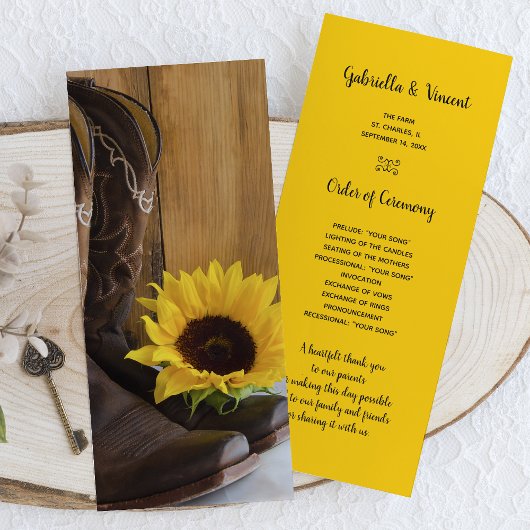 Gabriella & Vincent
THE FARM
ST. CHARLES, IL
SEPTEMBER 14, 20XX
Order of Ceremony
PRELUDE: "YOUR SONG"
LIGHTING OF THE CANDLES
SEATING OF THE MOTHERS
PROCESSIONAL: "YOUR SONG"
INVOCATION
EXCHANGE OF VOWS
EXCHANGE OF RINGS
PRONOUNCEMENT
RECESSIONAL: "YOUR SONG"
A heartfelt thank you
to our parents
making this day possible
to our family and friends
sharing it with us.